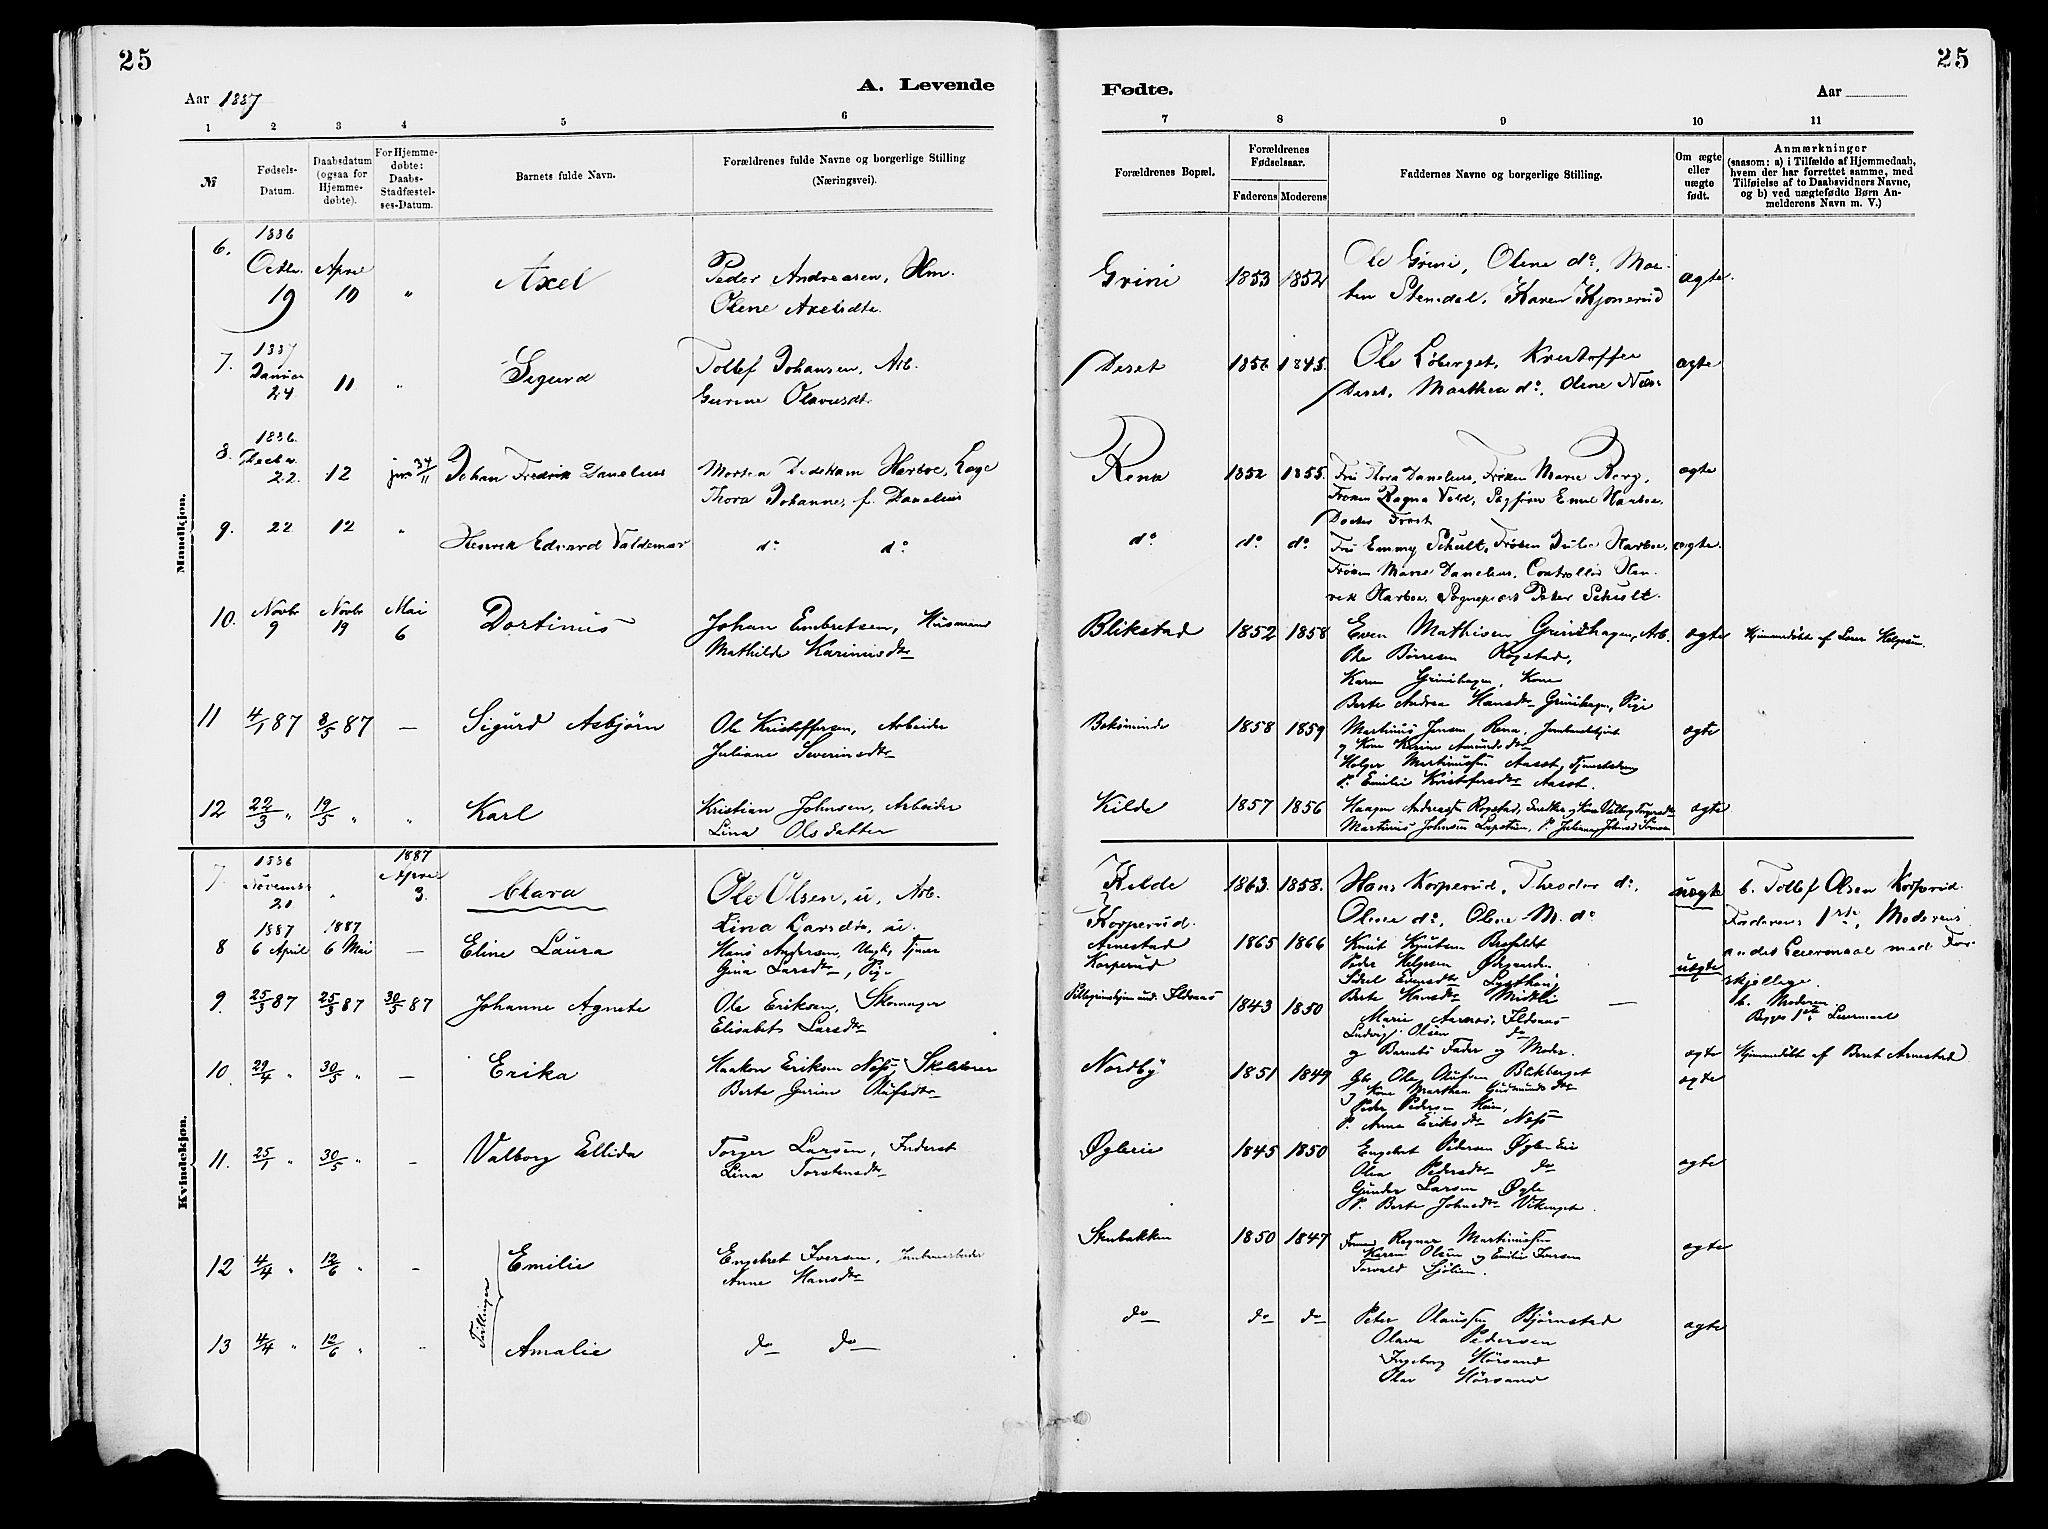 25
25
A. Levende
Fødte.
Aar 1887
Aar
1 2 3 4 5 6
7 8 9 10 11
№
Fødsels-
Datum.
Daabsdatum
(ogsaa for
Hjemme-
døbte).
For Hjemme-
døbte:
Daabs-
Stadfæstel-
ses-Datum.
Barnets fulde Navn.
Forældrenes fulde Navne og borgerlige Stilling
(Næringsvei).
Forældrenes Bopæl.
Forældrenes
Fødselsaar.
Faderens Moderens
Faddernes Navne og borgerlige Stilling.
Om ægte
eller
uægte
født.
Anmærkninger
(saasom: a) i Tilfælde af Hjemmedaab,
hvem der har forrettet samme, med
Tilføielse af to Daabsvidners Navne,
og b) ved uægtefødte Børn An-
melderens Navn m. V.)
Mandkjøn.
6. 1886 Octbr. 19 April 10 " Axel Peder Andreasen, Hm.
Olene Axelsdtr.
Grini 1853 1852 Ole Grini, Olene do, Mar-
ten Stensdal, Karen Kjønerud
ægte.
7. 1887 Januar 24 11 " Sigurd Tollef Johansen, Arb.
Gurine Olavusdt.
Deset 1856 1845. Ole Løberget, Kristoffer
Deset, Marthea do, Olene Næs
ægte
8. 1886. Decbr. 22. 12 Johan Fredrik Danelius Morten Harboe, Læge
Thora Johanne, f. Danelius
Rena 1852 1855. Fru Thora Danelius, Frøken Marie Berg,
Frøken Ragna Sagfører Emil Harboe,
Doctor Frost
ægte
9. 22 12 " Henrik Edvard Valdemar do do
do do do Fru Emmy Schult, Frøken Julie Harboe,
Frøken Marie Danelius, Controllør Hen-
rik Harboe, Sognepræst Peter Schult.
ægte.
10. Novbr 9 Novbr 19 Mai 6 Dortinus Johan Embretsen, Husmand
Mathilde Karinusdtr
Blikstad 1852 1858 Even Mathisen Grinihagen, Arb.
Ole Børresen Rogstad,
Karen Grinihagen, Kone
Berte Andrea Hansdtr Grinihagen, Pige
ægte Hjemmedøbt af Helgesen.
11 4/1 87 8/5 87 — Sigurd Asbjørn Ole Kristoffersen, Arbeider
Juliane Severinsdtr
1858 1859 Martinus Jensen Rena,
og Kone Karine Amundsdtr
Holger Martinussen Aaset,
P. Emilie Kristofersdtr Aaset.
ægte
12 22/3 " 19/5 " " Karl Kristian Johnsen, Arbeider
Lina Olsdatter
Kilde 1857 1856 Haagen Andreassen Rogstad, Snedker og Kone Valborg
Martinus Johnsen
ægte
Kvindekjøn.
7. 1886 November 20 " 1887 April 3. Clara Ole Olsen, u, Arb.
Lina Larsdtr, u.
Kilde
Korperud.
1863. 1858. Hans Korperud, Theodor do,
Olene do, Olene M. do
uægte b. Tollef Olsen Korperud.
Faderens 1ste, Moderens
andet Leiermaal med For-
skjellige.
8 1887 6 April 1887 6 Mai — Eline Laura Hans Andersen, Ungk, Tjener
Gina Larsdtr, Pige
Arnestad
Korperud
1865 1866 Knut Knutsen
Peder Helgesen
Sidsel Evensdtr
Berte Hansdtr
uægte
b. Moderen
Begges 1ste Leiermaal
9. 25/3 87 25/3 87 30/5 87 Johanne Agnete Ole Eriksen, Skomager
Elisabet Larsdtr
1843 1850 —
Marie
Ludvig Olsen do
og Barnets Fader og Moder.
ægte Hjemmedøbt af Beret Arnestad
10. 29/4 " 30/5 " — Erika Haaken Eriksen Næss,
Berte Gurine Olufsdtr
Nordby 1851 1849 Gbr Ole Olufsen Blikberget
og Kone Marthea Gudmundsdtr
Peder Pedersen
P. Anne Eriksdtr Næss
ægte
11. 25/1 " 30/5 " — Valborg Ellida Torger Larsen, Inderst
Lina Torstensdtr
Øglerie 1845 1850 Engebret Pedersen
Olea Pedersdtr do
Gunder Larsen Øgle
P. Berte Johnsdtr
ægte
Tvillinger
12 4/4 " 12/6 " - Emilie Engebret Iversen,
Anne Hansdtr
Skubakken 1850 1847 Ragnar Martinussen
Karen Olsen og Emilie Iversen
Torvald Sjølien.
ægte
13 4/4 " 12/6 " " Amalie do do
do do do Peter Olaussen Bjørnstad
Olava Pedersen
Ingeborg Hørsand
Olav Hørsand
ægte